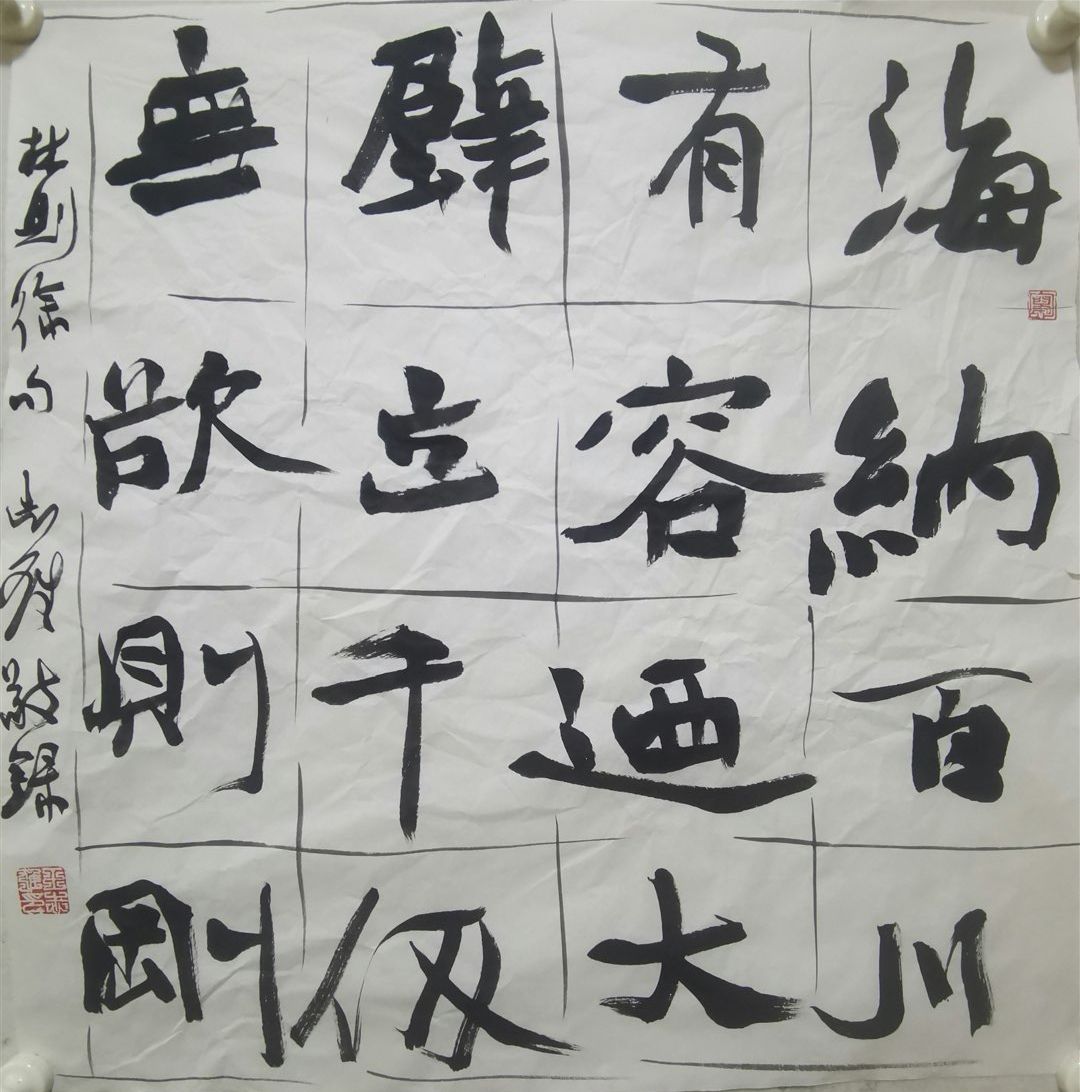 海納百川
有容迺大
壁立千仞
無欲則剛
林则徐句 敬録